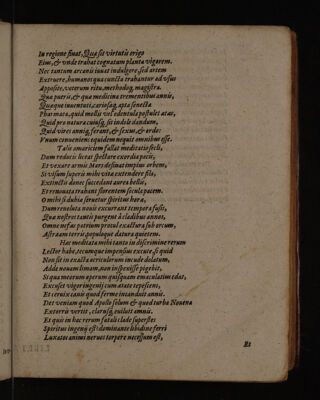 In regione finat. Quæ sit virtutis origo
Eius, & vnde trahat cognatum planta vigorem.
Nec tantum arcanis iuuat indulgere, sed artem
Extruere, humanos qua cuncta trahantur ad vsus
Apposite, veterum ritu, methodoq; magistra.
Qua pueris, & qua medicina trementibus annis,
Quæque iuuentuti, cariosæq; apta senectæ
Pharmata, quid mollis vel edentula postulet ætas,
Quid pro natura cuiusq; sit inde legendum,
Quid vires anniq; ferant, & sexus, & ordo:
Vnum conueniens equidem nequit omnibus esse.
Talis amariciem fallat meditatio secli,
Dum reducis lectas spectare exordia pacis,
Et vexare armis Mars desinat impius orbem,
Si visum superis mihi vitæ extendere fila,
Extincto donec succedant aurea bellis,
Et remota trahant florentem secula pacem.
O mihi si dubiæ seruetur spiritus horæ,
Dum renoluta nouis excurrant tempora fusis,
Qua nostros tantis purgent à cladibus annos,
Omne nefas patrium procul exactura sub arcum,
Astræam terris, populoque datura quietem.
Hæc meditata mihi tanto in discrimine rerum
Lector habe, tecumque impensius excute, si quid
Non sit in exacta acriculorum incude dolatum,
Adde nouam limam, non inspexisse pigebit,
Si qua meorum operum quisquam emaculatius edat,
Excuset vigor ingenij cum ætate tepescens,
Et ceruix canis quod ferme intanduit annis.
Det veniam quod Apollo solum & quod turba Nouena
Extorris vertit, clarusq; exulet amnis.
Et quis in hac rerum fatali clade superstes
Spiritus ingenij est? dominante libidine ferri
Luxatos animi neruos torpere necessum est,
Et